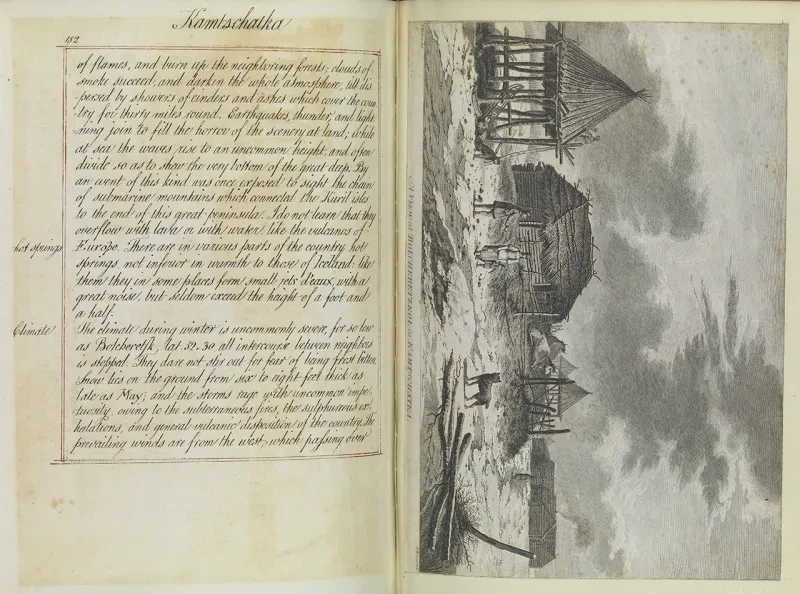 Kamtschatka
152
of flames, and burn up the neighboring forests; clouds of
smoke succeed, and darken the whole atmosphere, till dis-
-persed by showers of cinders and ashes which cover the coun
try for thirty miles round. Earthquakes, thunder, and light
ning join to fill the horror of the scenery at land; while
at sea the waves rise to an uncommon height, and often
divide so as to shew the very bottom of the great deep. By
an event of this kind was once exposed to sight the chain
of submarine mountains which connected the Kuril isles
to the end of this great peninsula. I do not learn that they
overflow with lava or with water, like the vulcanos of
hot springs
Europe. There are in various parts of the country hot
springs not inferior in warmth to those of Iceland: like
them they in some places form small jets d'eaux, with a
great noise, but seldom exceed the height of a foot and
a half.
Climate
The climate during winter is uncommonly severe, for so low
as Bolcheretsk, lat. 52. 30 all intercourse between neighbors
is stopped. They dare not stir out for fear of being frost bitten.
Snow lies on the ground from six to eight feet thick as
late as May; and the storms rage with uncommon impe
tuosity, owing to the subterraneous fires, the sulphureous ex
halations, and general vulcanic disposition of the country. The
prevailing winds are from the west, which passing over
A VIEW at BOLCHERETZKOI, in KAMTSCHATKA